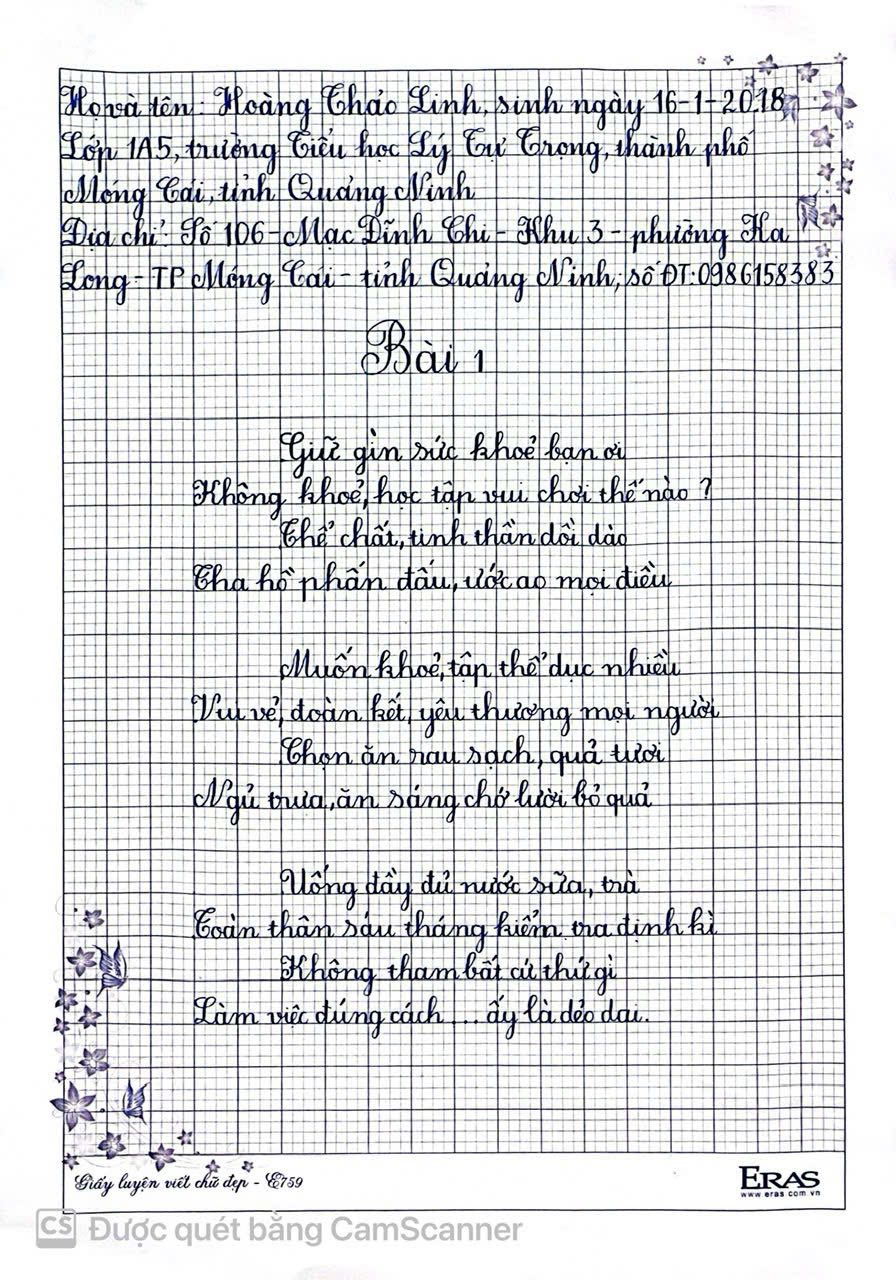 Họ và tên: Hoàng Thảo Linh, sinh ngày 16-1-2018
Lớp 1A5, trường Tiểu học Lý Tự Trọng, thành phố
Móng Cái, tỉnh Quảng Ninh
Địa chỉ: Số 106-Mạc Đĩnh Chi - Khu 3 - phường Ka
Long - TP Móng Cái - tỉnh Quảng Ninh; số ĐT: 0986158383
Bài 1
Giữ gìn sức khoẻ bạn ơi
Không khoẻ, học tập vui chơi thế nào ?
Thể chất, tinh thần dồi dào
Tha hồ phấn đấu, ước ao mọi điều
Muốn khoẻ, tập thể dục nhiều
Vui vẻ, đoàn kết, yêu thương mọi người
Chọn ăn rau sạch, quả tươi
Ngủ trưa, ăn sáng chớ lười bỏ quả
Uống đầy đủ nước sữa, trà
Toàn thân sáu tháng kiểm tra định kì
Không tham bất cứ thứ gì
Làm việc đúng cách ... ấy là dẻo dai.
Giấy luyện viết chữ đẹp - E759
ERAS
www.eras.com.vn
CS Được quét bằng CamScanner